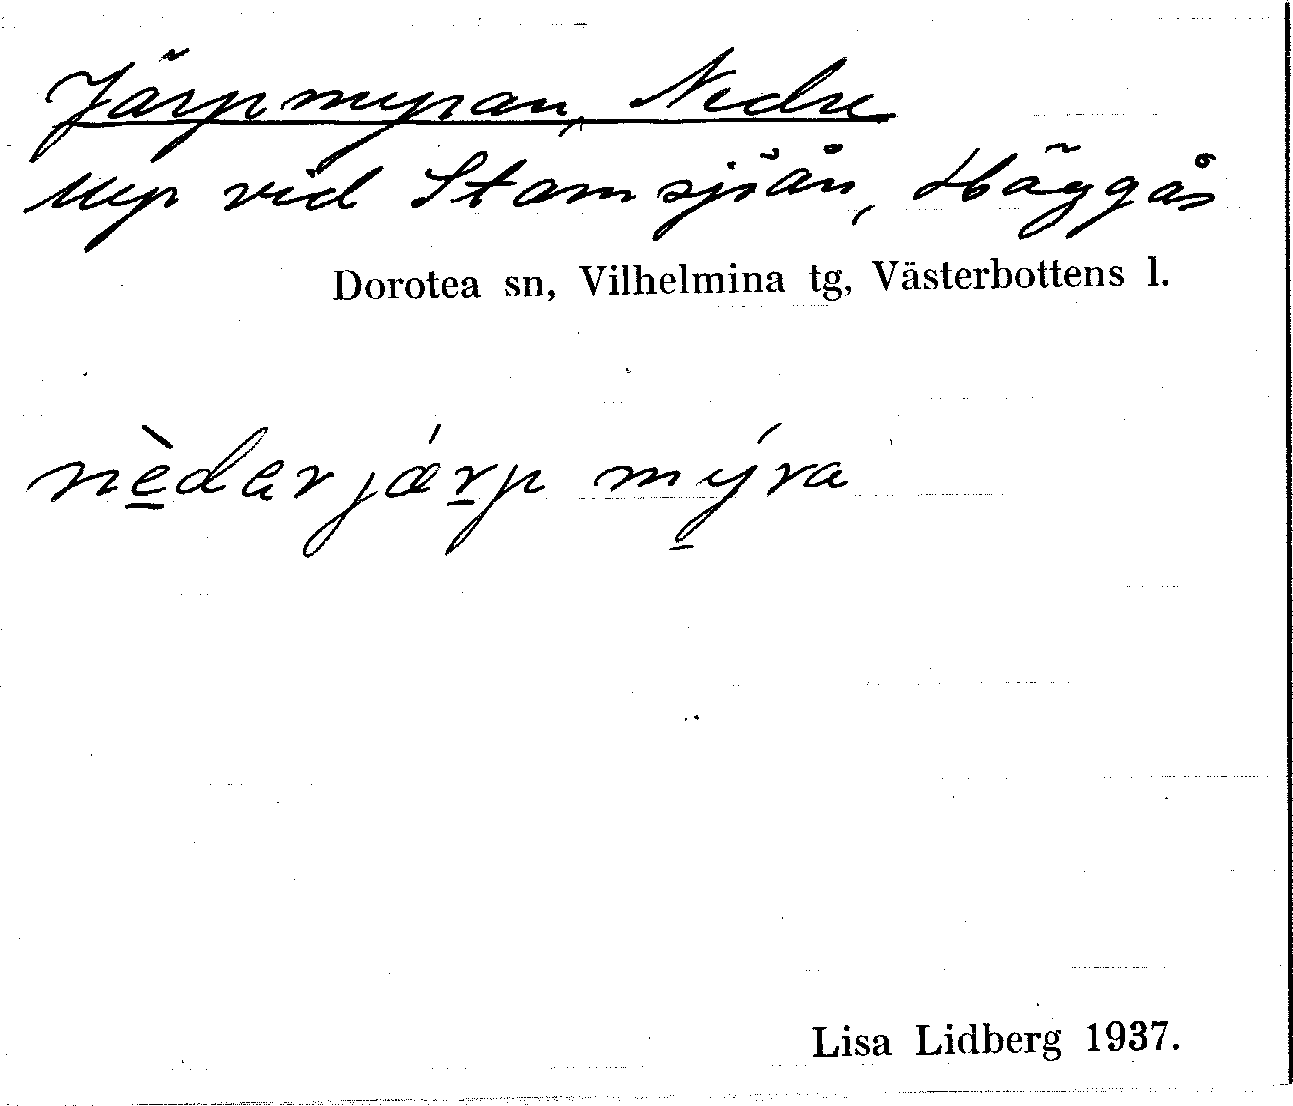 Järpmyran, Nedre
Myr vid Stamsjöån, Häggås
Dorotea sn, Vilhelmina tg, Västerbottens l.
nèdarjǽrp mýra
Lisa Lidberg 1937.